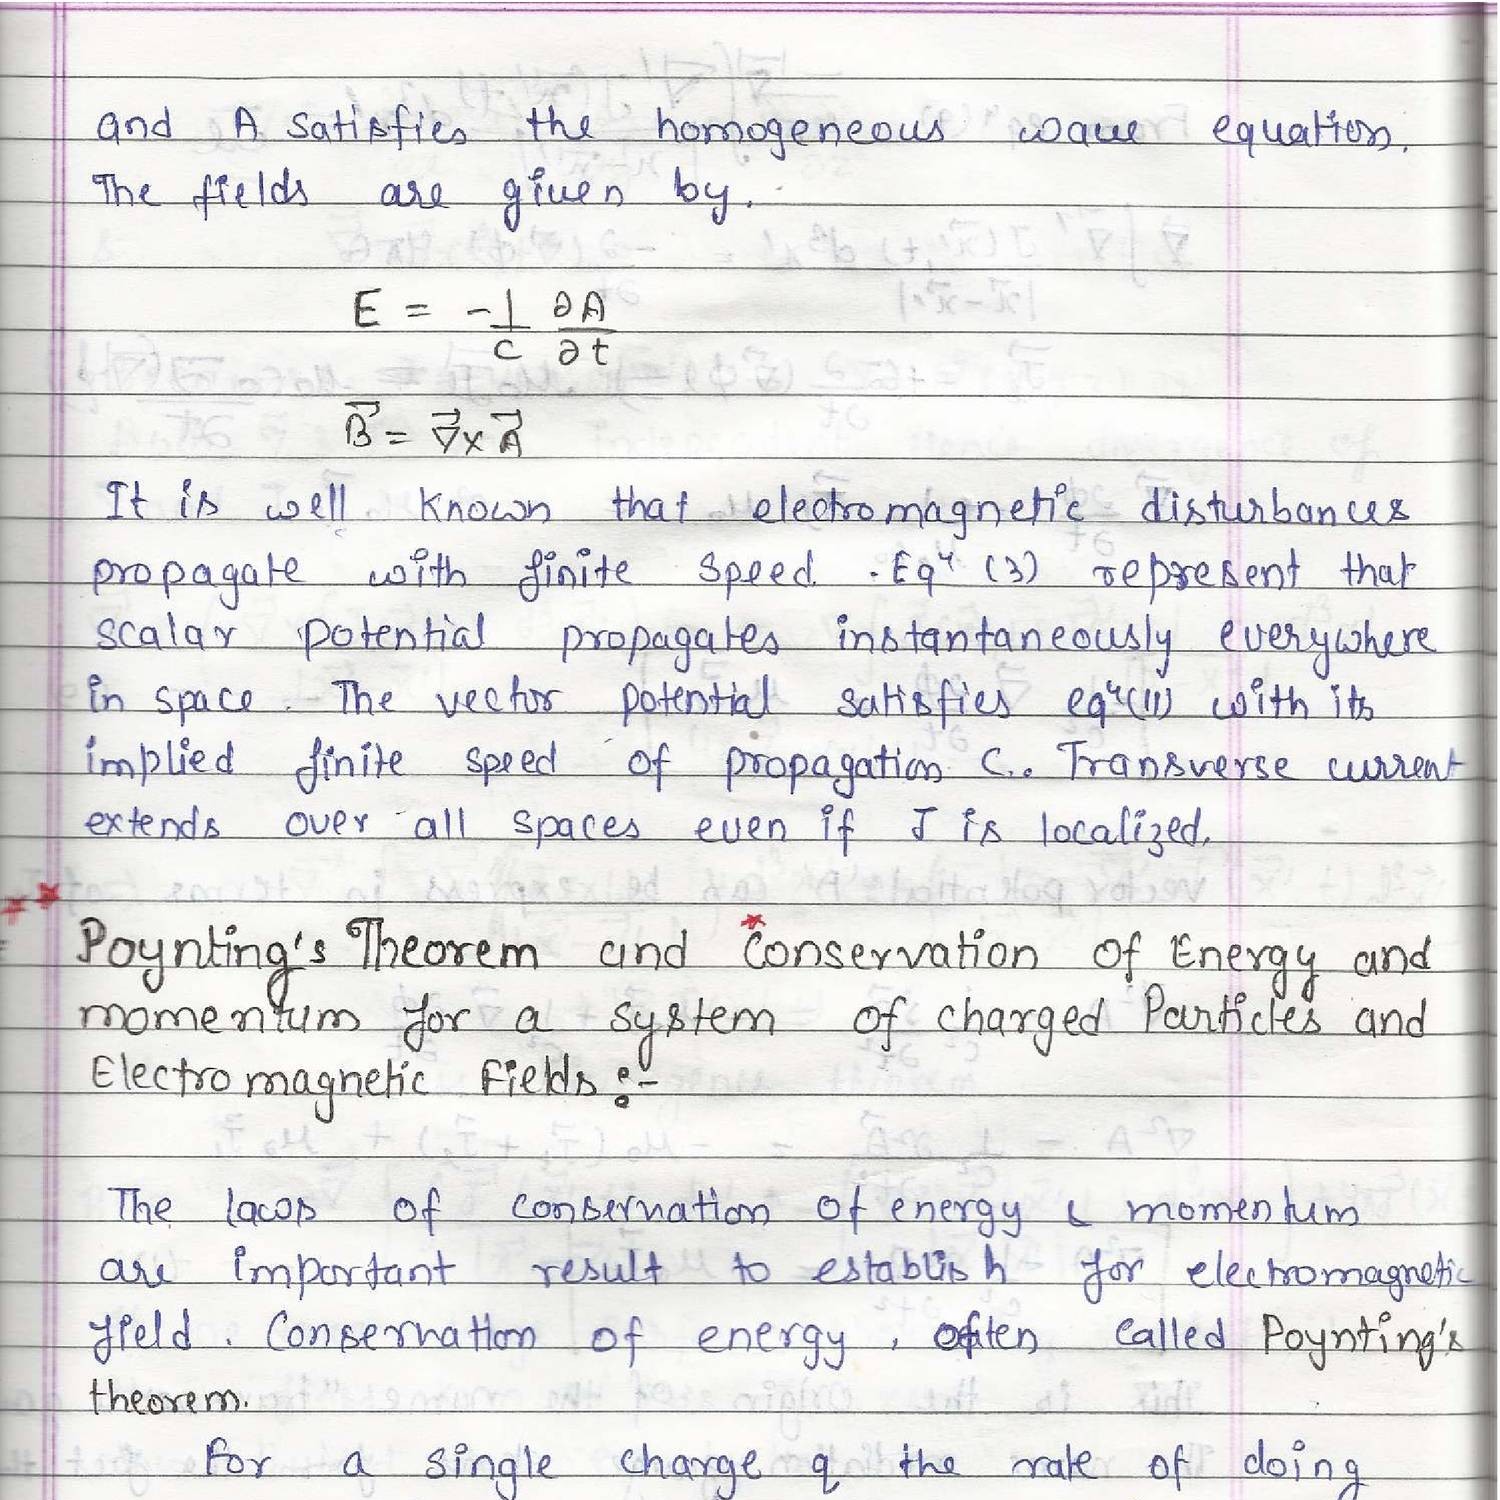 and A satisfies the homogeneous wave equation.
The fields are given by.
E = -1/c ∂A/∂t
B⃗ = ∇⃗ × A⃗
It is well known that electromagnetic disturbances
propagate with finite speed. Eqⁿ (3) represent that
scalar potential propagates instantaneously everywhere
in space. The vector potential satisfies eqⁿ(11) with its
implied finite speed of propagation C. Transverse current
extends over all spaces even if J is localized.
Poynting's Theorem and Conservation of Energy and
momentum for a system of charged Particles and
Electromagnetic Fields :-
The laws of conservation of energy & momentum
are important result to establish for electromagnetic
field. Conservation of energy, often called Poynting's
theorem.
For a single charge q the rate of doing